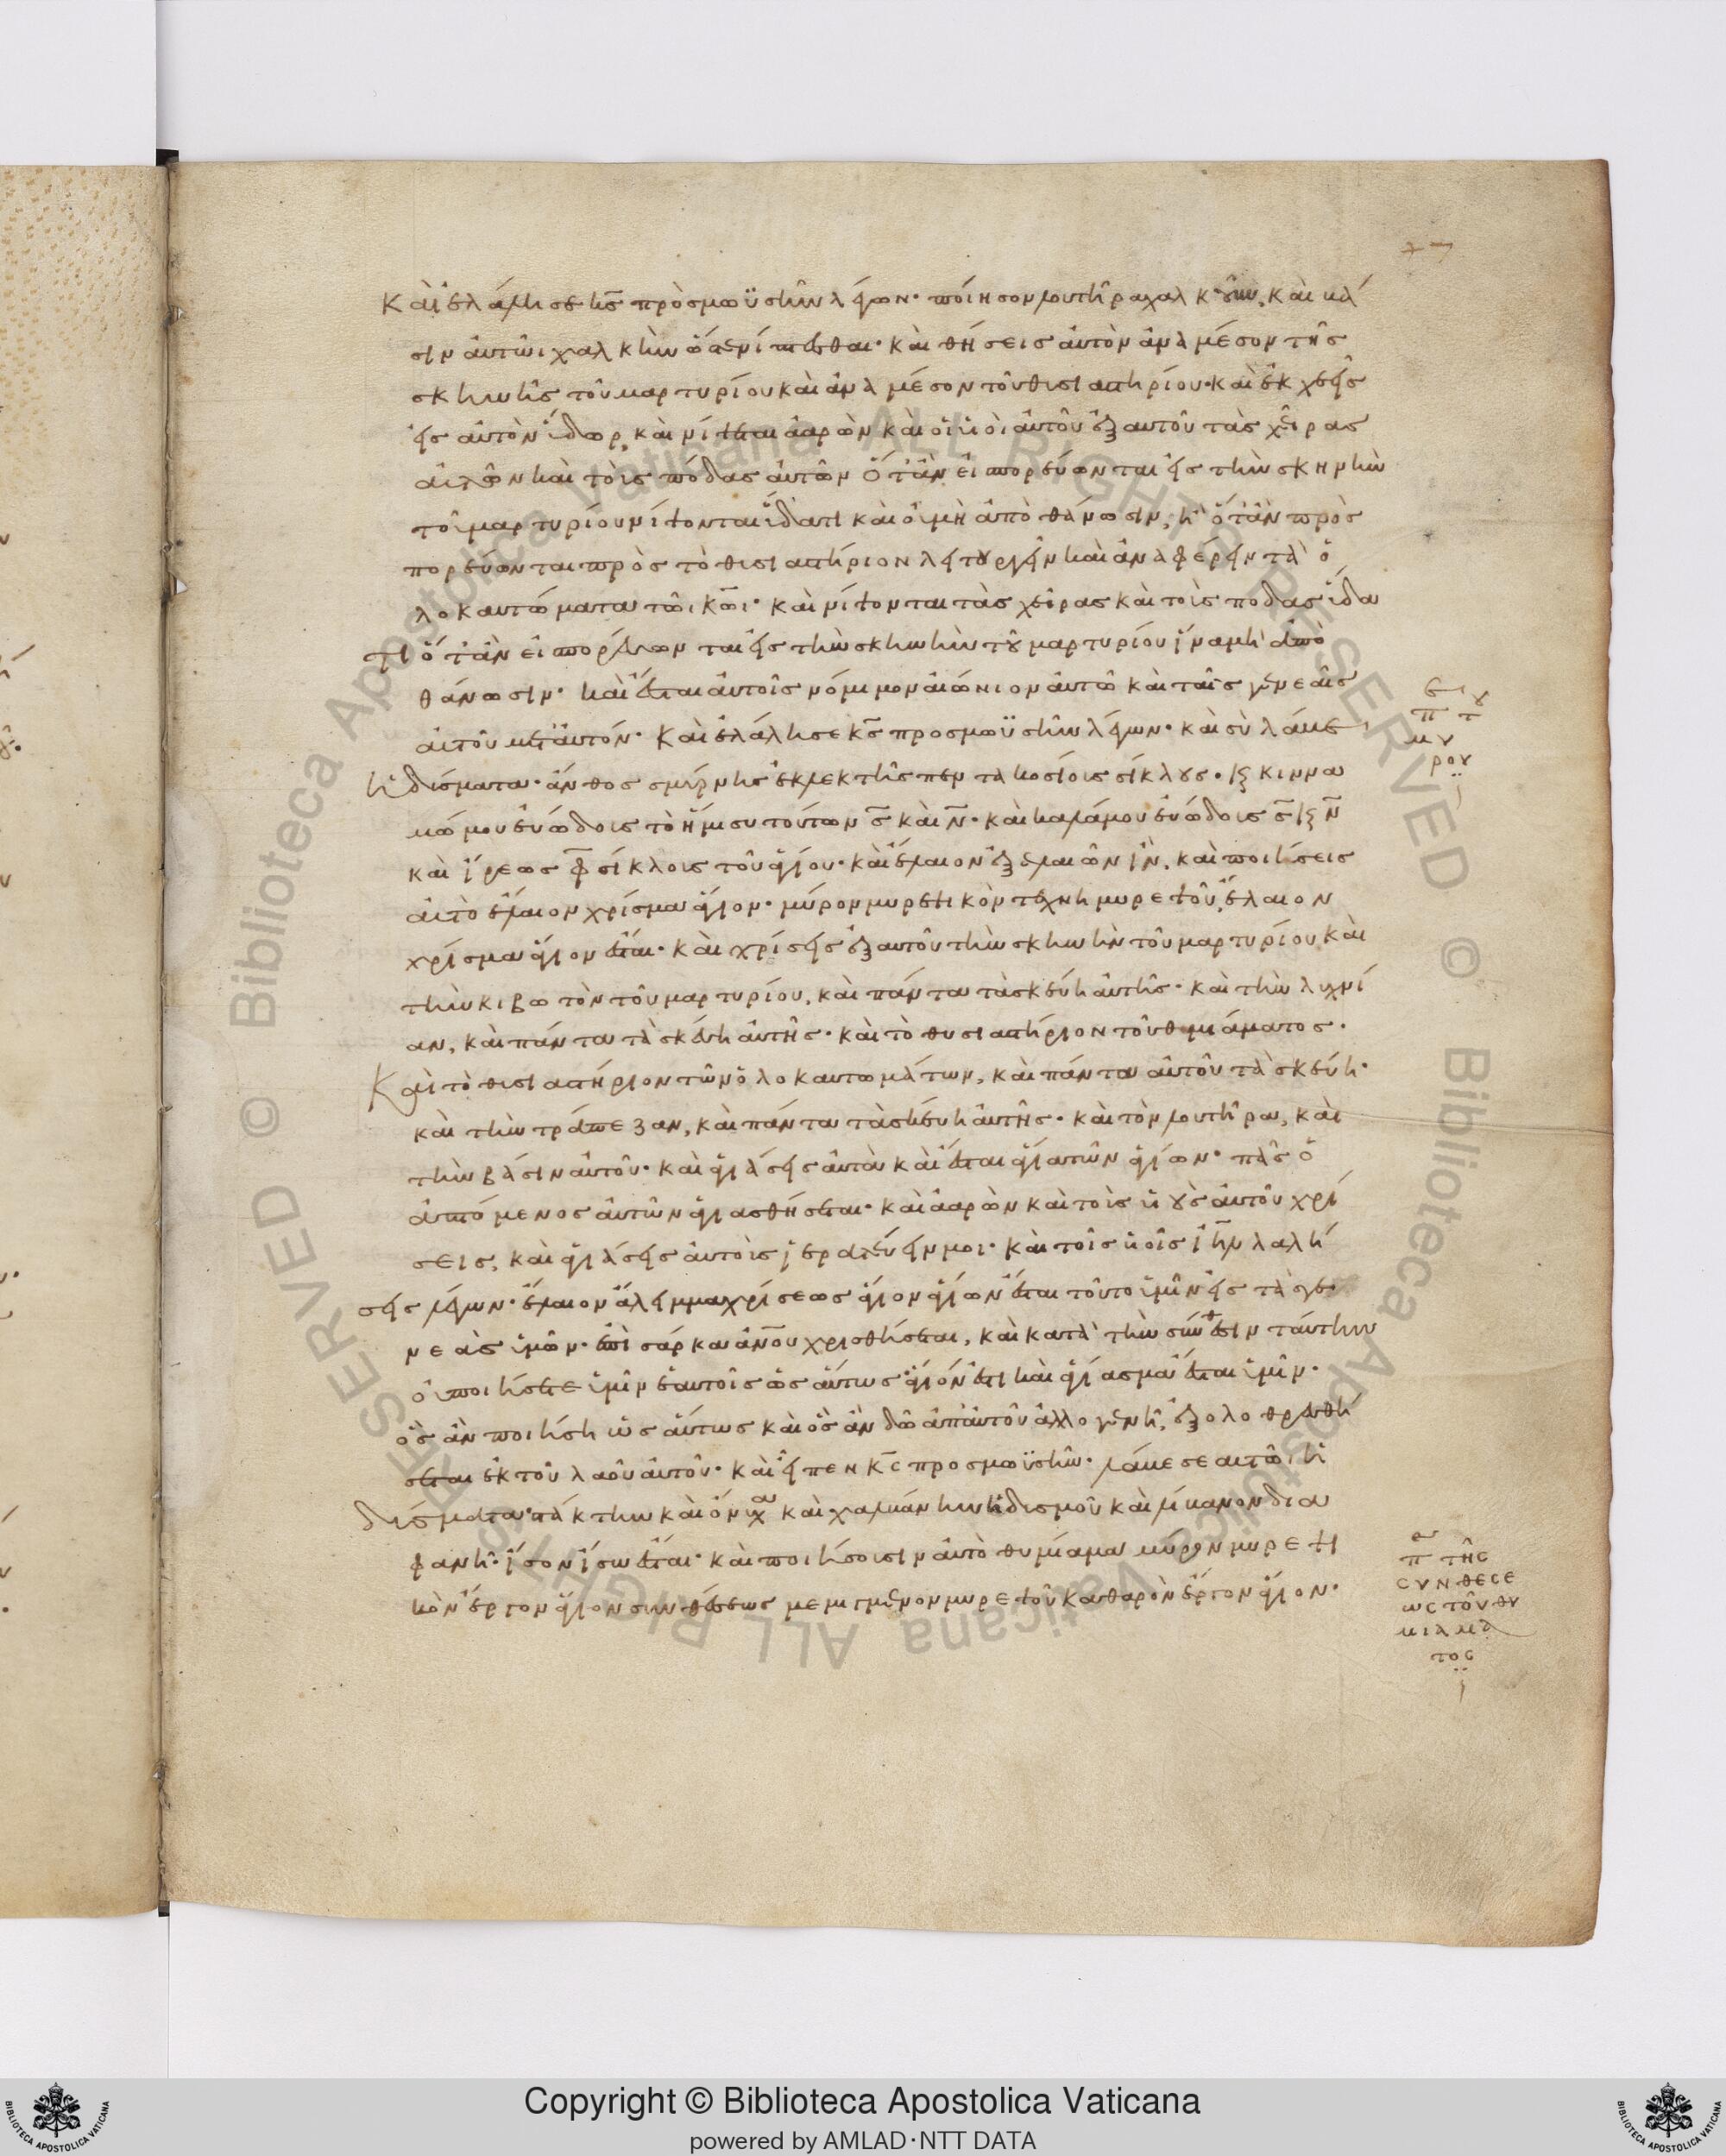 Καὶ ἐλάλησε κς πρὸς μωϋσὴν λέγων· ποίησον λουτῆρα χαλκοῦν, καὶ βά
σιν αὐτῶι χαλκὴν ὥστε νίπτεσθαι· καὶ θήσεις αὐτὸν ἀνὰ μέσον τῆς
σκηνῆς τοῦ μαρτυρίου καὶ ἀνὰ μέσον τοῦ θυσιαστηρίου· καὶ ἐκχεεῖς
εἰς αὐτὸν ὕδωρ, καὶ νίψεται ἀαρὼν καὶ οἱ υἱοὶ αὐτοῦ ἐξ αυτοῦ τὰς χεῖρας
αὐτῶν καὶ τοὺς πόδας αὐτῶν ὅταν εἰσπορεύωνται εἰς τὴν σκηνὴν
τοῦ μαρτυρίου νίψονται ὕδατι καὶ οὐ μὴ ἀποθάνωσιν, ἢ ὅταν προσ
πορεύωνται πρὸς τὸ θυσιαστήριον λειτουργεῖν καὶ ἀναφέρειν τὰ ὁ
λοκαυτώματα τῶι κωι· καὶ νίψονται τὰς χεῖρας καὶ τοὺς ποδας ὕδα
τι ὅταν εἰσπορεύωνται εἰς τὴν σκηνὴν τοῦ μαρτυρίου ἵνα μὴ ἀπο
θάνωσιν· καὶ ἔσται αὐτοῖς νόμιμον αἰώνιον αὐτῶ καὶ ταῖς γενεαῖς
αὐτοῦ μετ αὐτόν· Καὶ ἐλάλησε κς προς μωϋσὴν λέγων· καὶ σὺ λάβε
ἡδύσματα· ἄνθος σμύρνης ἐκλεκτῆς πεντακοσίους σίκλους· καὶ κιννα
μώμου εὐώδους τὸ ἥμισυ τούτων σ καὶ ν· καὶ καλάμου εὐώδους σ καὶ ν
καὶ ἴρεως φ σίκλους τοῦ ἁγίου· καὶ ἔλαιον ἐξ ελαιῶν ἵν, καὶ ποιήσεις
αὐτὸ ἔλαιον χρίσμα ἅγιον· μύρον μυρεψικὸν τέχνη μυρεψοῦ, ἔλαιον
χρίσμα ἅγιον ἔσται· καὶ χρίσεις ἐξ αυτοῦ τὴν σκηνὴν τοῦ μαρτυρίου καὶ
τὴν κιβωτὸν τοῦ μαρτυρίου, καὶ πάντα τὰ σκεύη αὐτῆς· καὶ τὴν λυχνί
αν, καὶ πάντα τὰ σκεύη αὐτῆς· καὶ τὸ θυσιαστήριον τοῦ θυμιάματος·
Καὶ τὸ θυσιαστήριον τῶν ὁλοκαυτωμάτων, καὶ πάντα αὐτοῦ τὰ σκεύη·
καὶ τὴν τράπεζαν, καὶ πάντα τὰ σκεύη αὐτῆς· καὶ τὸν λουτῆρα, καὶ
τὴν βάσιν αὐτοῦ· καὶ ἁγιάσεις αὐτὰ καὶ ἔσται ἅγια τῶν ἁγίων· πᾶς ὁ
ἁπτόμενος αὐτῶν ἁγιασθήσεται· καὶ ἀαρὼν καὶ τοὺς υἱοὺς αὐτοῦ χρί
σεις, καὶ ἁγιάσεις αὐτοὺς ἱερατεύειν μοι· καὶ τοῖς υἱοῖς ιηλ λαλή
σεις λέγων· ἔλαιον ἄλειμμα χρίσεως ἅγιον ἁγίων ἔσται τοῦτο ὑμῖν εἰς τὰς γε
νεὰς ὑμῶν· ἐπὶ σάρκα ἀνου χρισθήσεται, καὶ κατὰ τὴν σύνθεσιν ταύτην
οὐ ποιήσετε ὑμῖν ἑαυτοῖς ὡσαύτως ἅγιόν ἐστι καὶ ἁγίασμα ἔσται ὑμῖν·
ὃς ἂν ποιήση ὡσαύτως καὶ ὃς ἂν δῶ ἀπ αὐτοῦ ἀλλογενῆ, ἐξολοθρευθή
σεται ἐκ τοῦ λαοῦ αὐτοῦ· καὶ εἶπεν κς προς μωϋσὴν· λάβε σεαυτῶι ἡ
δύσματα· στάκτην καὶ ὄνυχα καὶ χαλβάνην ἡδυσμοῦ καὶ λίβανον δια
φανῆ· ἴσον ἴσω ἔσται· καὶ ποιήσουσιν αὐτὸ θυμίαμα μύρον μυρεψι
κὸν ἔργον ἅγιον συνθέσεως μεμιγμένον μυρεψοῦ καθαρὸν ἔργον ἅγιον·
π τοῦ
μυ
ρου
π τῆς
συνθεσε
ως τοῦ θυ
μιαμα
τος